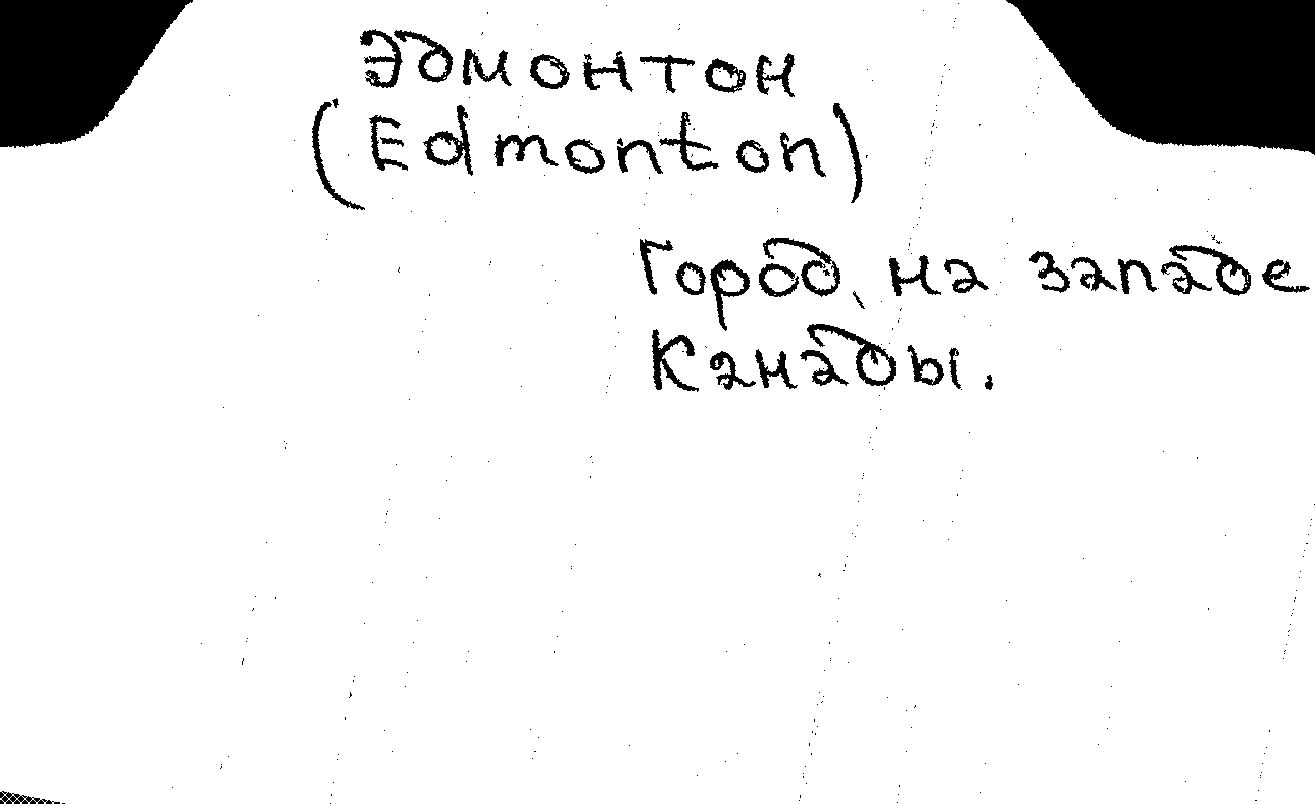 Эдмонтон
(Edmonton)
Город, на западе
Канады.